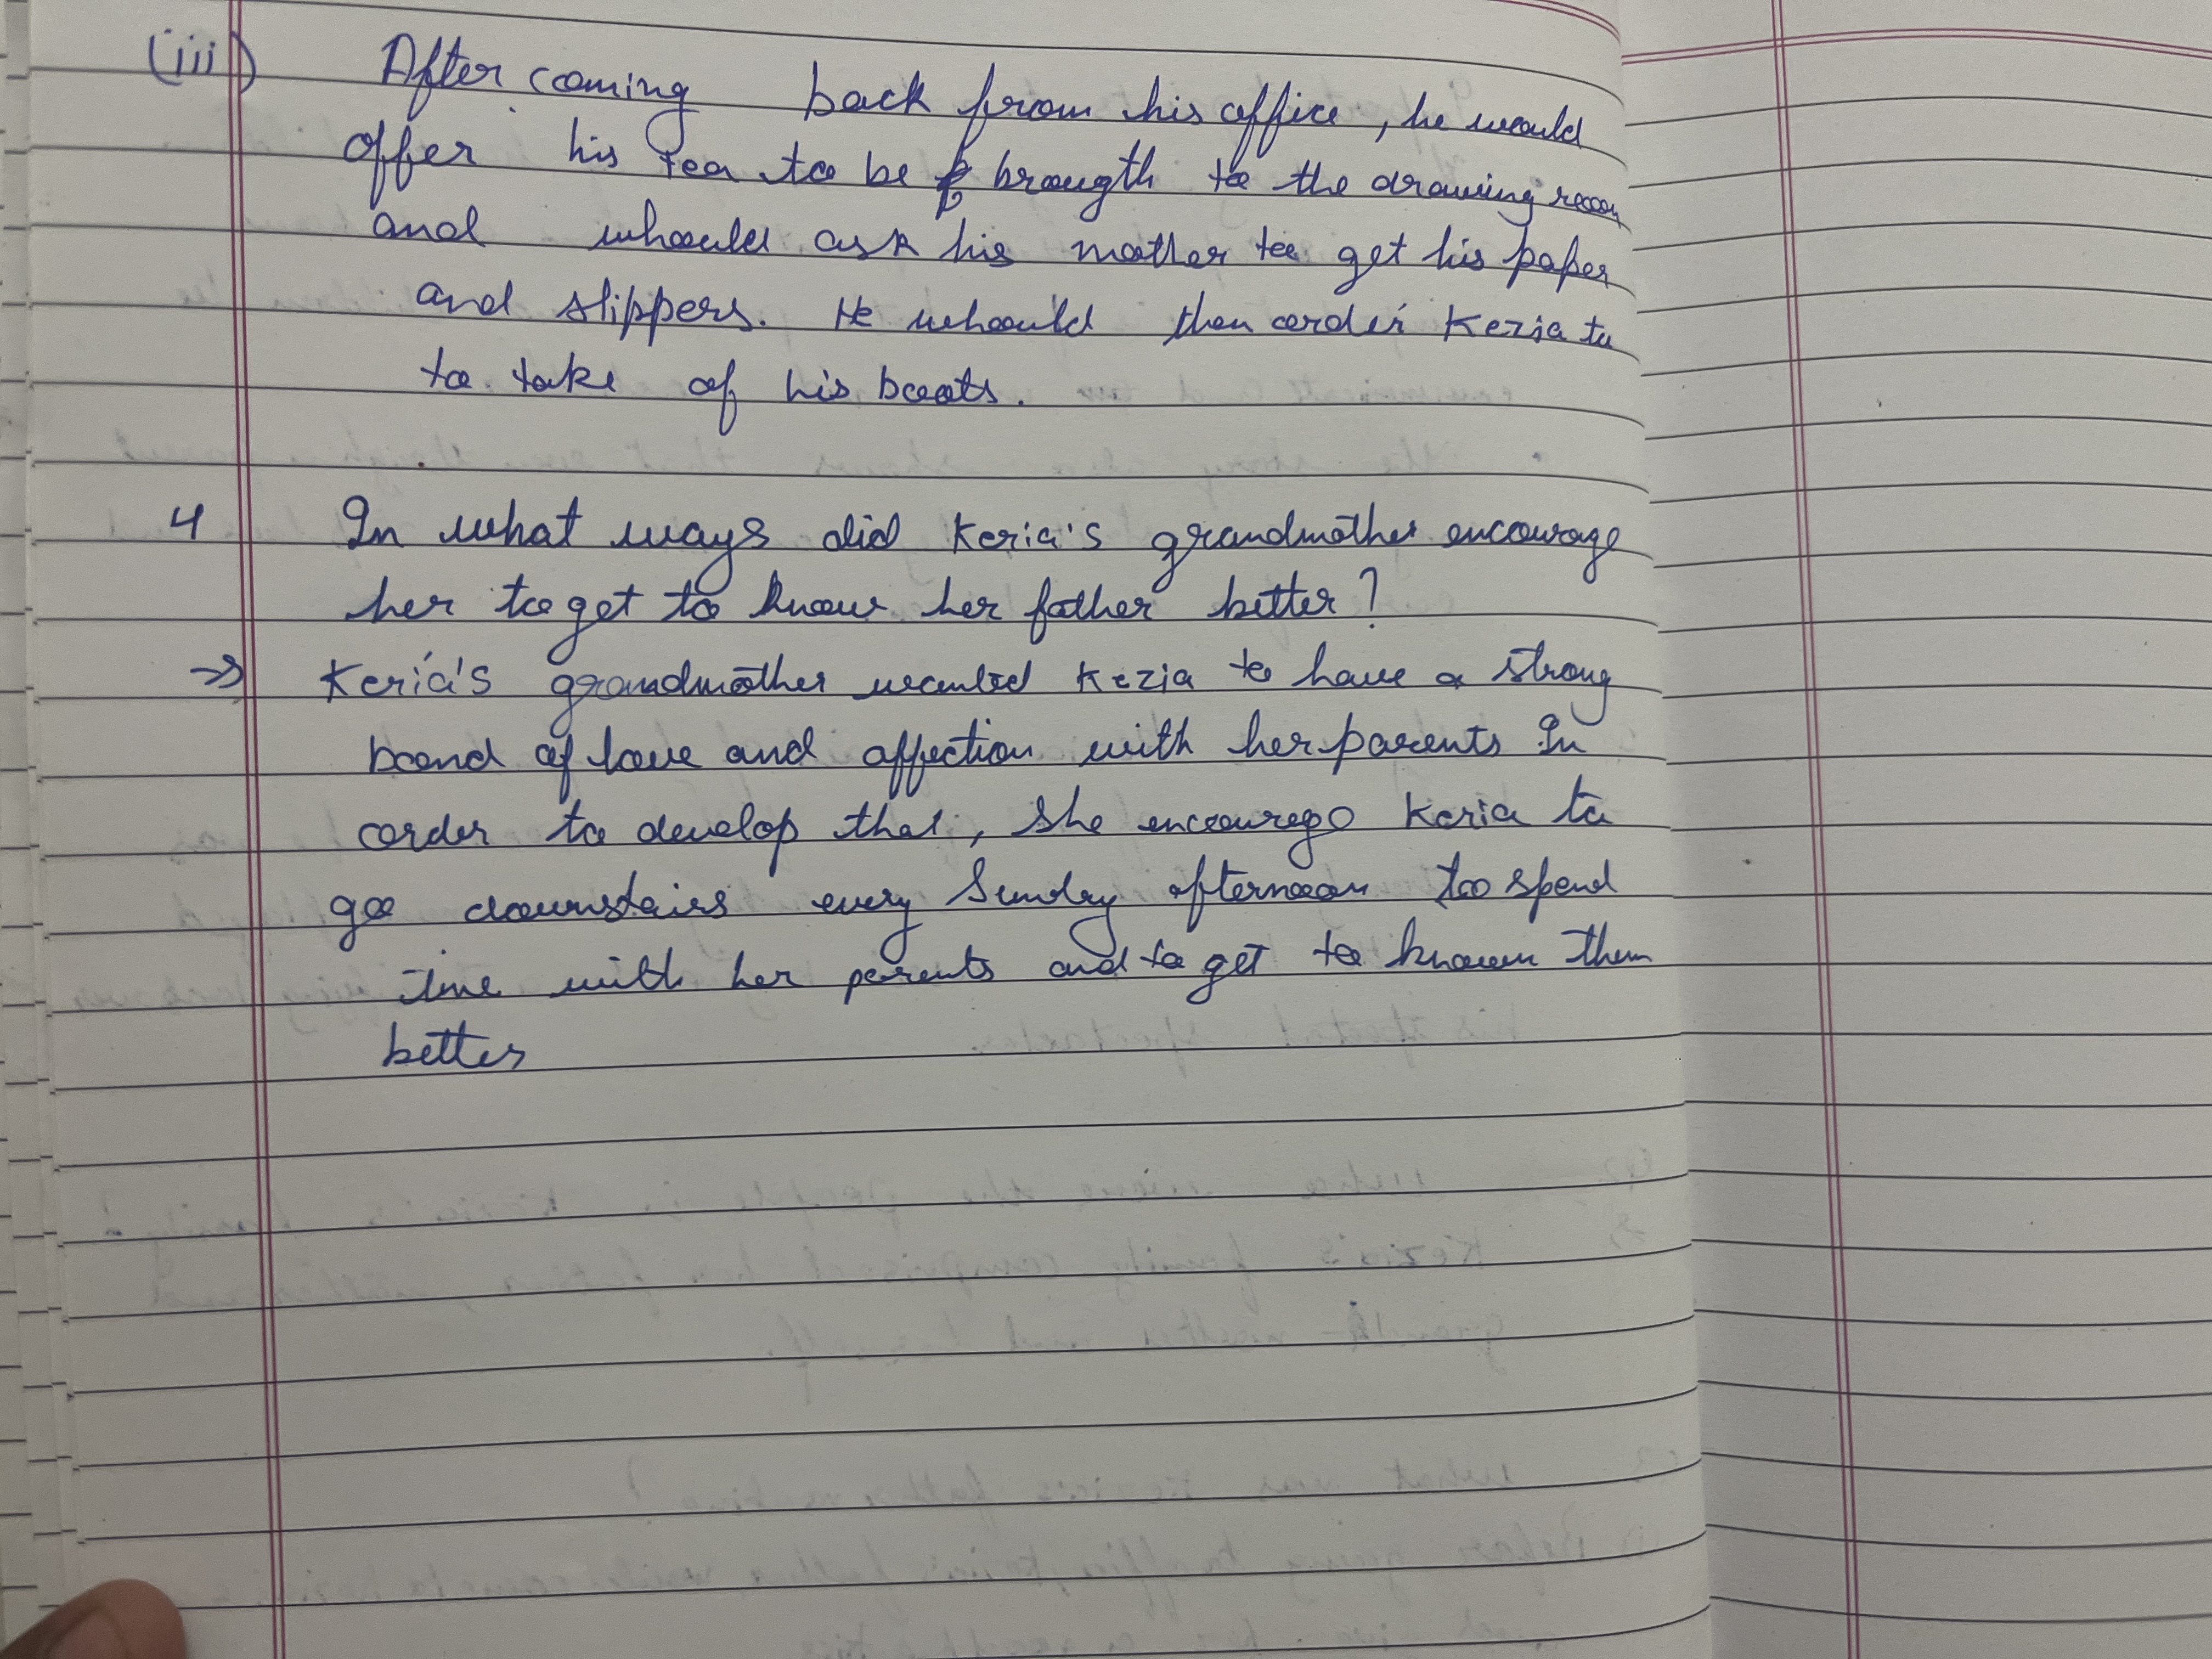 (iii) After coming back from his office, he would
offer his tea to be brougth to the drawing room
and whould ask his mother to get his paper
and slippers. He whould then order Kezia to
to take of his boots.
4 In what ways did Kezia's grandmother encourage
her to get to know her father better?
⇒ Kezia's grandmother wanted Kezia to have a strong
bond of love and affection with her parents In
order to develop that, she encourege Kezia to
go downstairs every Sunday afternoon to spend
time with her parents and to get to known them
better